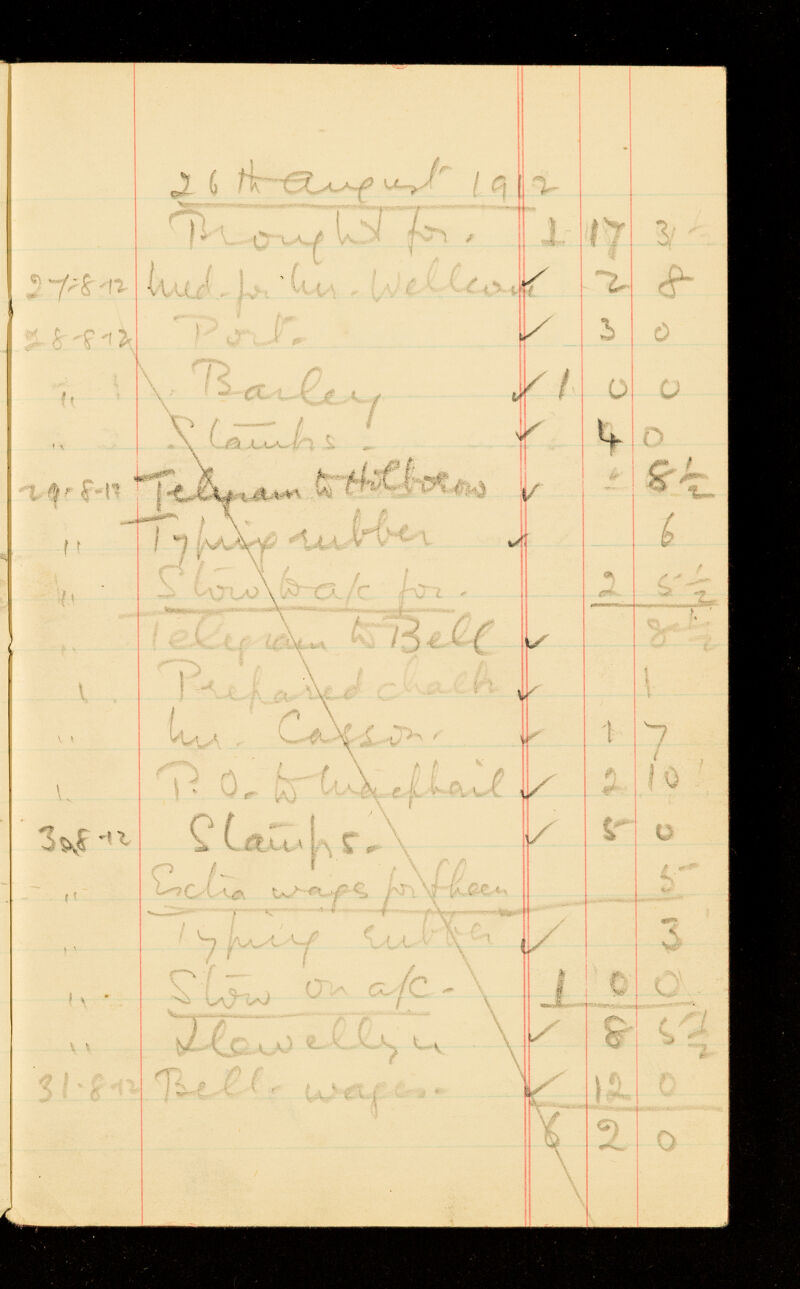 26th August 1912
Brought for. 1 17 3½
27-8-12 Med. for Mr. Wellcome ✓ 2 8
28-8-12 Port. ✓ 3 0
" Barley ✓ 1 0 0
" Stamps - ✓ 4 0
29-8-12 Telegram to Holborow ✓ - 8½
" Typing rubber ✓ 6
" Stow to a/c for. 2 5½
" Telegram to Bell ✓ 8½
" Prepared chalk ✓ 1
" Mr. Casson. ✓ 1 7
" P.O. to Macphail ✓ 2 10
30-8-12 Stamps. ✓ 5 0
" Extra wages for 5
" Typing rubber ✓ 3
" Stow on a/c - 1 0 0
" Llewellyn ✓ 8 5½
31-8-12 Bell - wages - ✓ 12 0
6 2 0